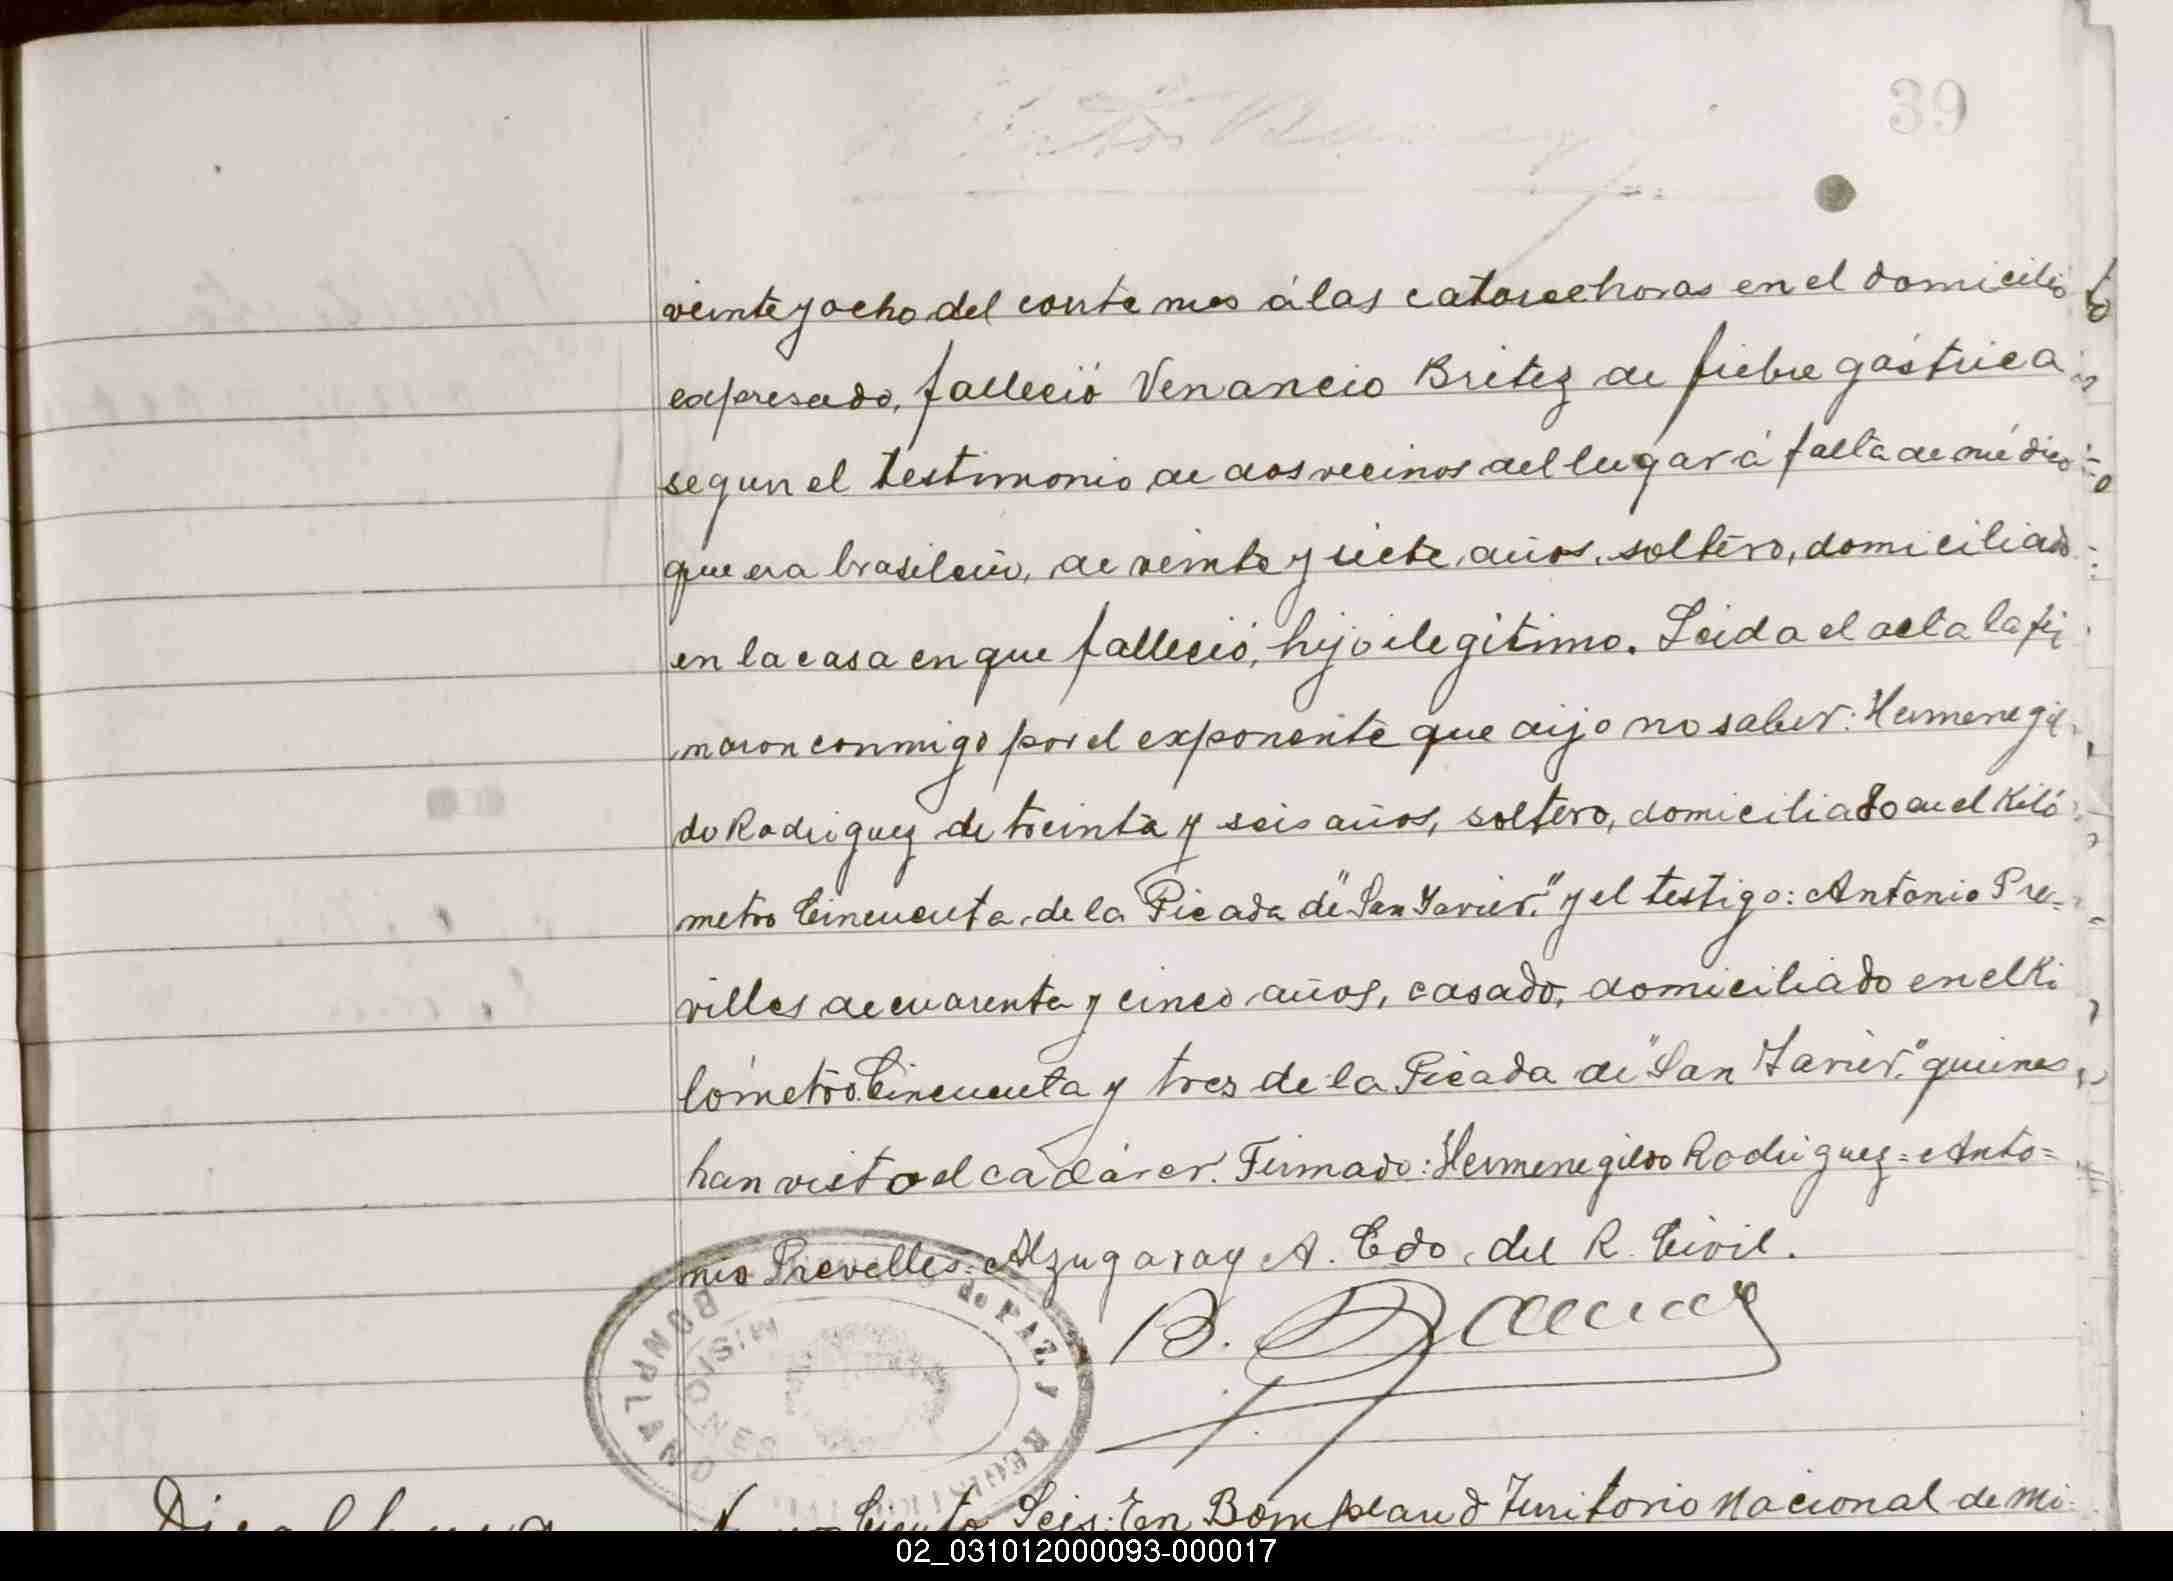 39
veinte y ocho del corrte mes á las catorce horas en el domicilio
expresado, falleció Venancio Britez de fiebre gástrica
segun el testimonio de dos vecinos del lugar á falta de médico
que era brasileño, de veinte y siete años, soltero, domiciliado
en la casa en que falleció, hijo ilegítimo. Leida el acta la fir
maron conmigo por el exponente que dijo no saber: Hermenegil
do Rodriguez de treinta y seis años, soltero, domiciliado en el Kiló
metro Cincuenta de la Picada de "San Javier." y el testigo: Antonio Pre=
villes de cuarenta y cinco años, casado, domiciliado en el Ki
lómetro Cincuenta y tres de la Picada de "San Javier." quienes
han visto el cadáver. Firmado: Hermenegildo Rodriguez = Anto=
nio Prevelles = Alzugaray A. Edo. del R. Civil.
B.
de PAZ y
BONPLAND
MISIONES
Ciento Seis: En Bompland Territorio Nacional de Mi-
02_031012000093-000017